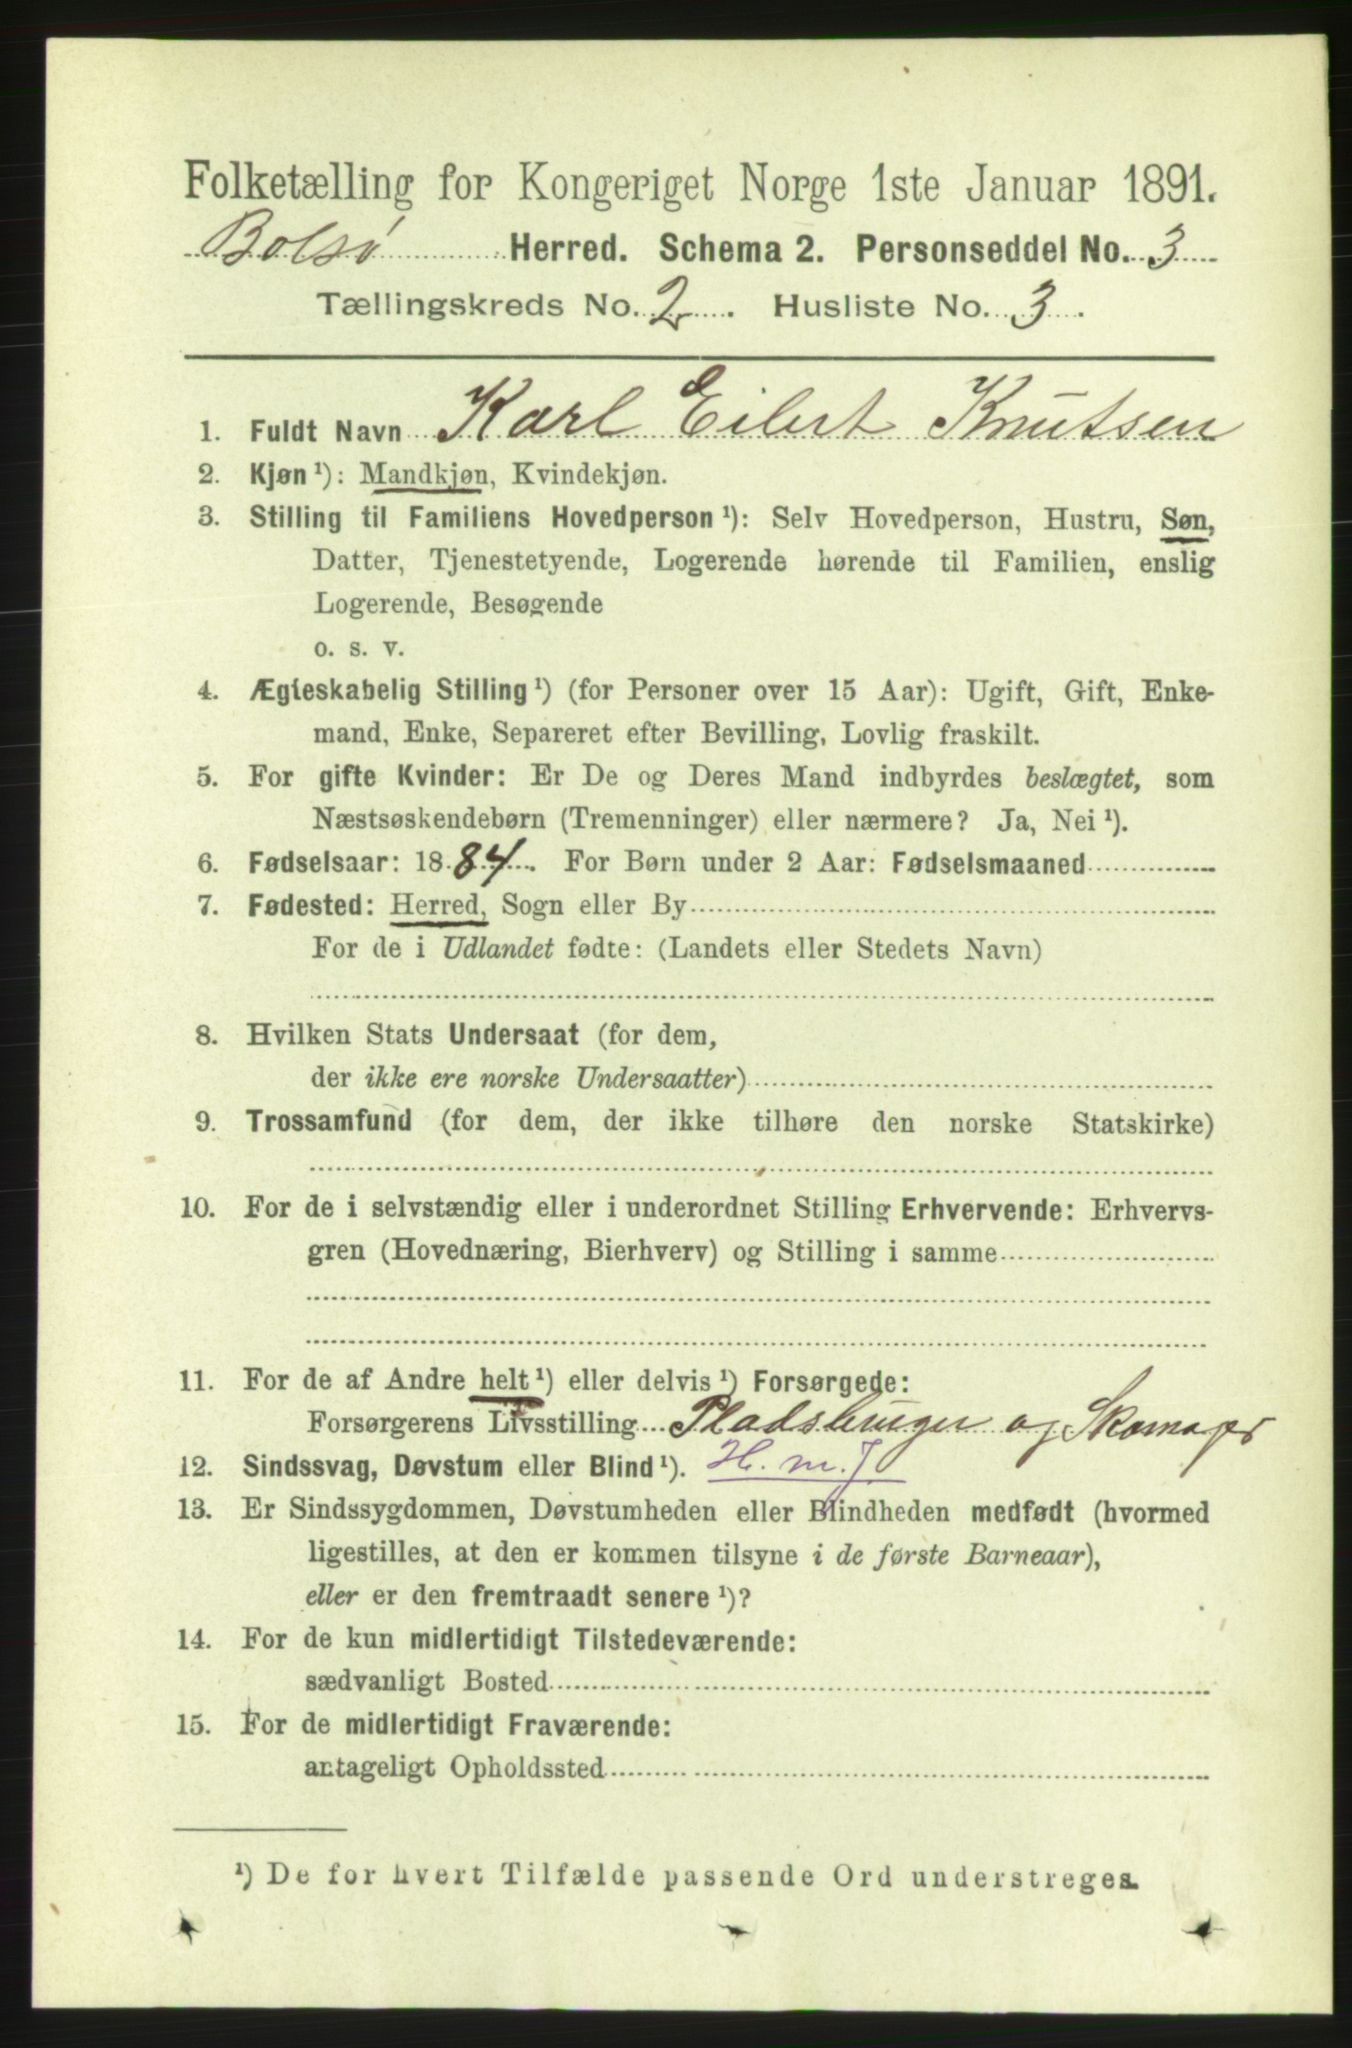 Folketælling for Kongeriget Norge 1ste Januar 1891.
Bolsø Herred. Schema 2. Personseddel No. 3
Tællingskreds No. 2. Husliste No. 3.
1. Fuldt Navn Karl Eilert Knutsen
2. Kjøn¹): Mandkjøn, Kvindekjøn.
3. Stilling til Familiens Hovedperson¹): Selv Hovedperson, Hustru, Søn,
Datter, Tjenestetyende, Logerende hørende til Familien, enslig
Logerende, Besøgende
o. s. v.
4. Ægteskabelig Stilling¹) (for Personer over 15 Aar): Ugift, Gift, Enke-
mand, Enke, Separeret efter Bevilling, Lovlig fraskilt.
5. For gifte Kvinder: Er De og Deres Mand indbyrdes beslægtet, som
Næstsøskendebørn (Tremenninger) eller nærmere? Ja, Nei¹).
6. Fødselsaar: 1884. For Børn under 2 Aar: Fødselsmaaned
7. Fødested: Herred, Sogn eller By
For de i Udlandet fødte: (Landets eller Stedets Navn)
8. Hvilken Stats Undersaat (for dem,
der ikke ere norske Undersaatter)
9. Trossamfund (for dem, der ikke tilhøre den norske Statskirke)
10. For de i selvstændig eller i underordnet Stilling Erhvervende: Erhvervs-
gren (Hovednæring, Bierhverv) og Stilling i samme
11. For de af Andre helt¹) eller delvis¹) Forsørgede:
Forsørgerens Livsstilling Pladsbruger og Skomager
12. Sindssvag, Døvstum eller Blind¹). H. m. J.
13. Er Sindssygdommen, Døvstumheden eller Blindheden medfødt (hvormed
ligestilles, at den er kommen tilsyne i de første Barneaar),
eller er den fremtraadt senere¹)?
14. For de kun midlertidigt Tilstedeværende:
sædvanligt Bosted
15. For de midlertidigt Fraværende:
antageligt Opholdssted
¹) De for hvert Tilfælde passende Ord understreges.